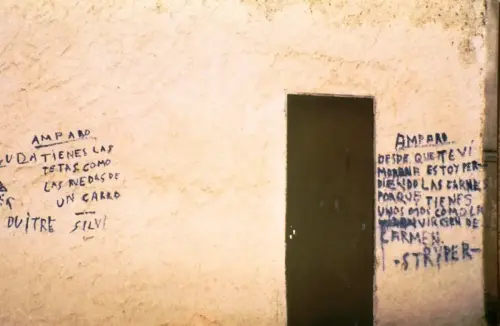 AMPARO
TIENES LAS
TETAS COMO
LAS RUEDAS DE
UN CARRO
BUITRE SILVI
AMPARO
DESDE QUE TEVI
MORENA ESTOY PER-
DIENDO LAS CARNES
PORQUE TIENES
UNOS OJOS COMO LA
VIRGEN DE
CARMEN.
-STRIPER-